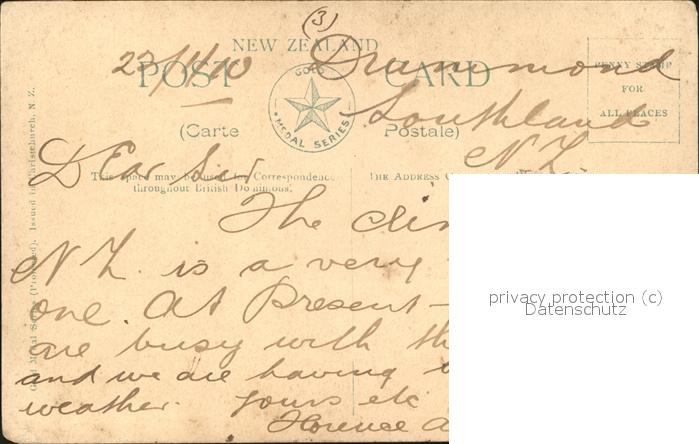 (3)
NEW ZEALAND
22/11/10 Drummond
POST CARD
GOLD MEDAL SERIES
PENNY STAMP
FOR
ALL PLACES
Southland
(Carte Postale)
N Z.
Dear Sir
This space may be used for Correspondence
throughout British Dominions.
THE ADDRESS
The
N Z. is a very
one. At Present
are busy with
and we are having
weather. Yours etc
Florence
Gold Medal Series (Protected). Issued in Christchurch, N. Z.
privacy protection (c)
Datenschutz